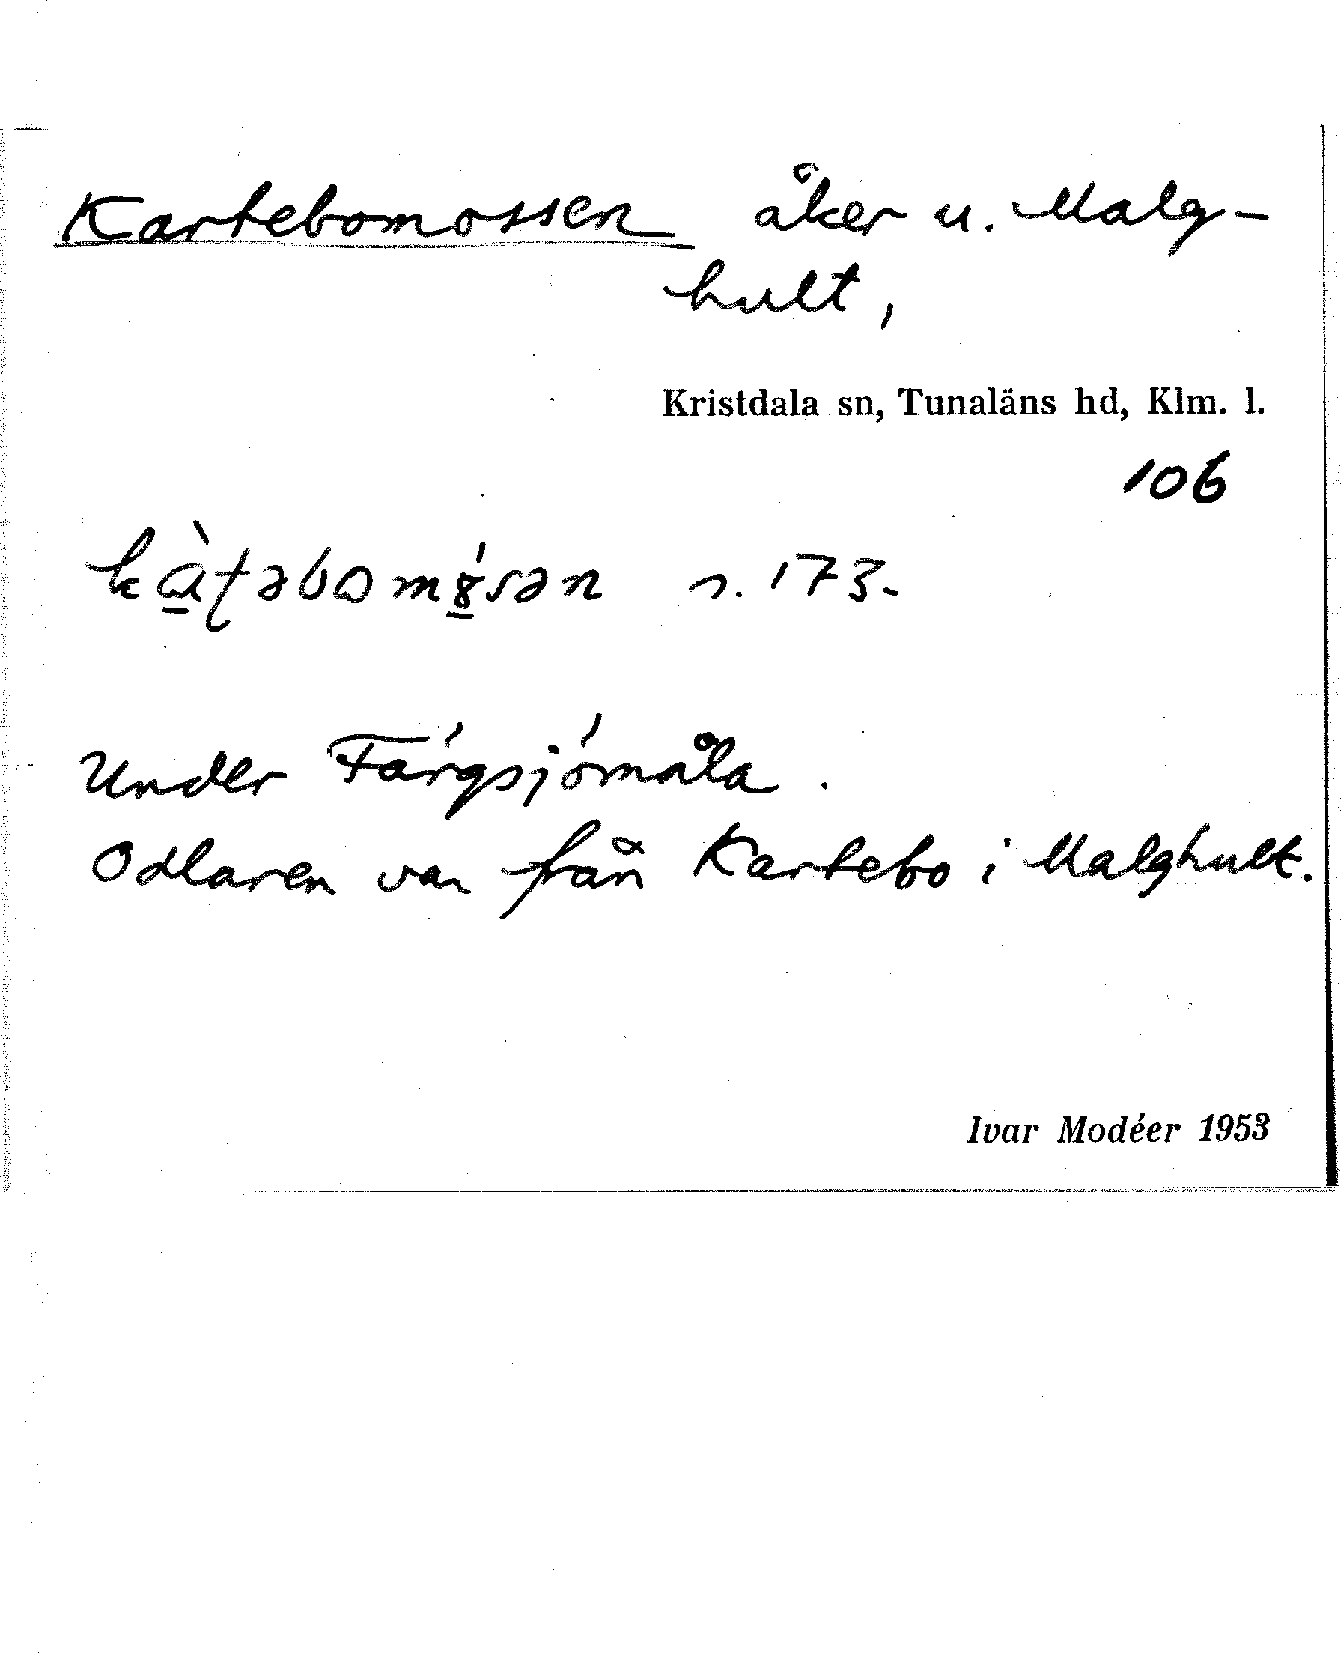 Kartebomossen åker u. Malg-
hult,
Kristdala sn, Tunaläns hd, Klm. l.
106
s. 173.
Under Färgsjömåla.
Odlaren var från Kartebo i Malghult.
Ivar Modéer 1953